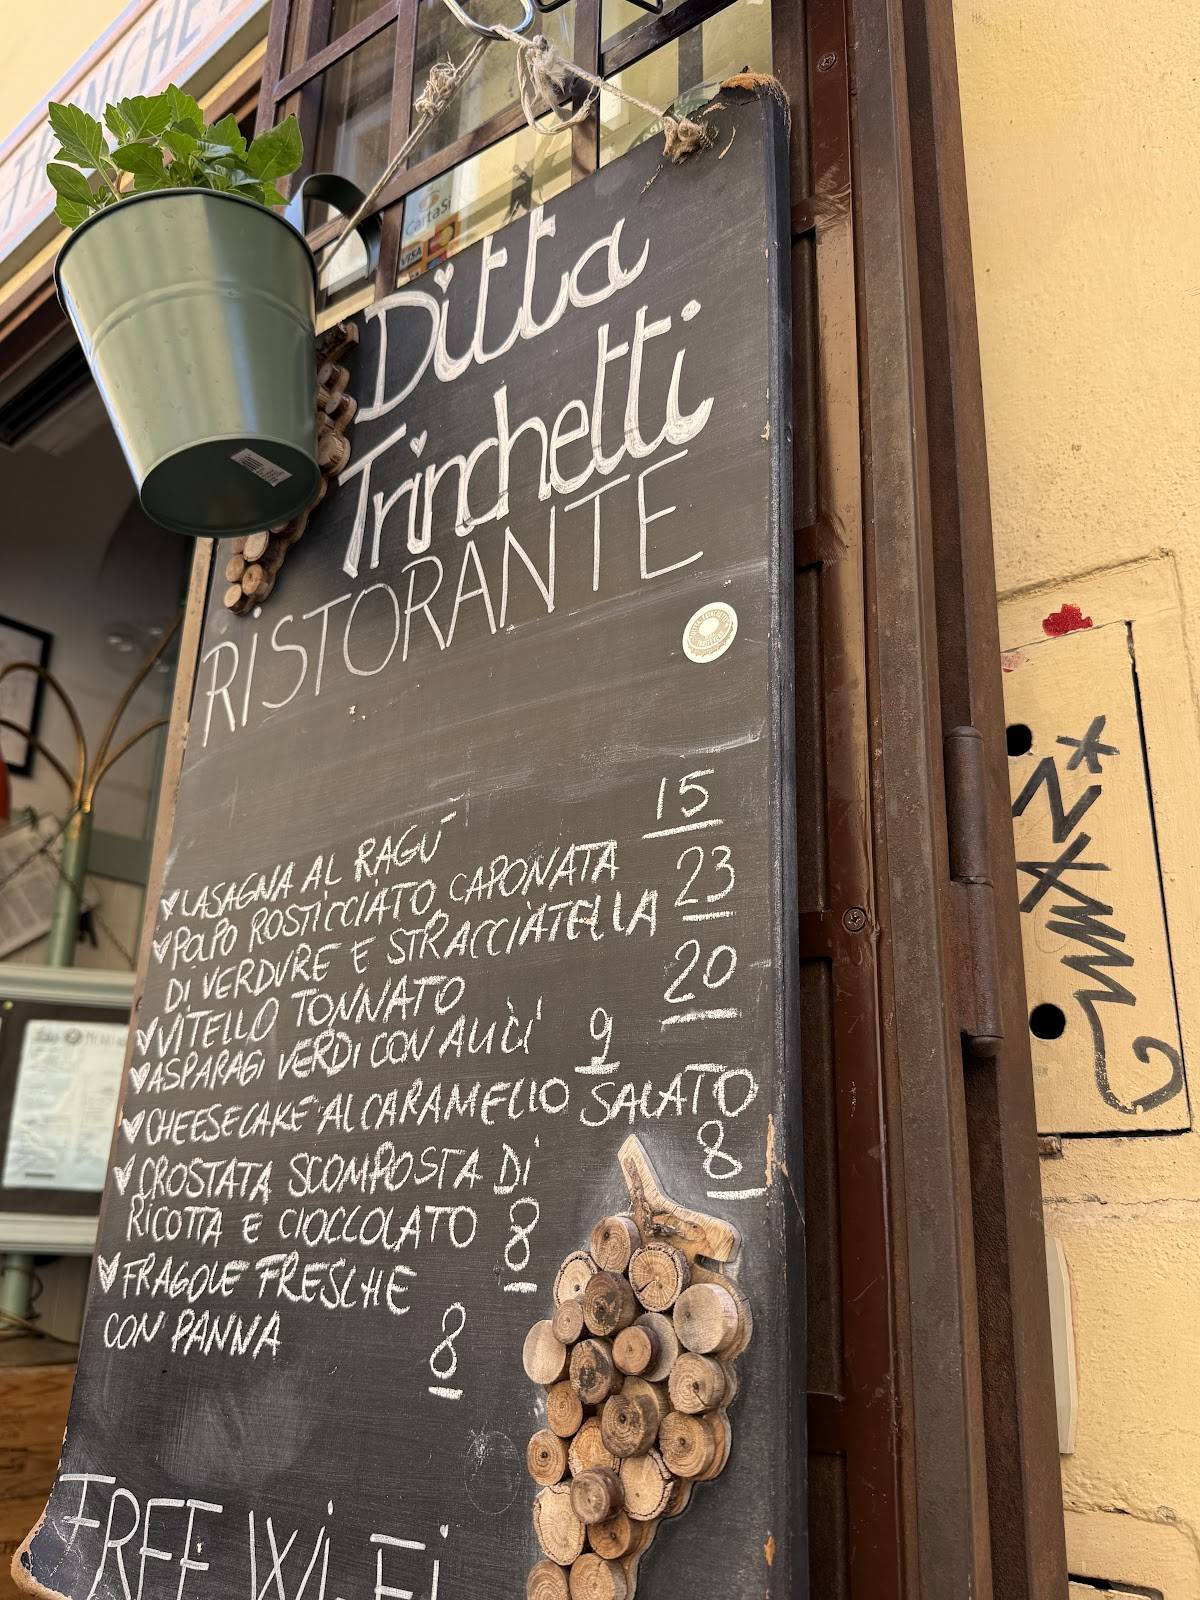 CartaSi
VISA
Ditta
Trinchetti
RISTORANTE
LASAGNA AL RAGÚ 15
POLPO ROSTICCIATO CAPONATA
DI VERDURE E STRACCIATELLA 23
VITELLO TONNATO 20
ASPARAGI VERDI CON ALICI 9
CHEESECAKE AL CARAMELLO SALATO
8
CROSTATA SCOMPOSTA DI
RICOTTA E CIOCCOLATO 8
FRAGOLE FRESCHE
CON PANNA 8
FREE WI-FI